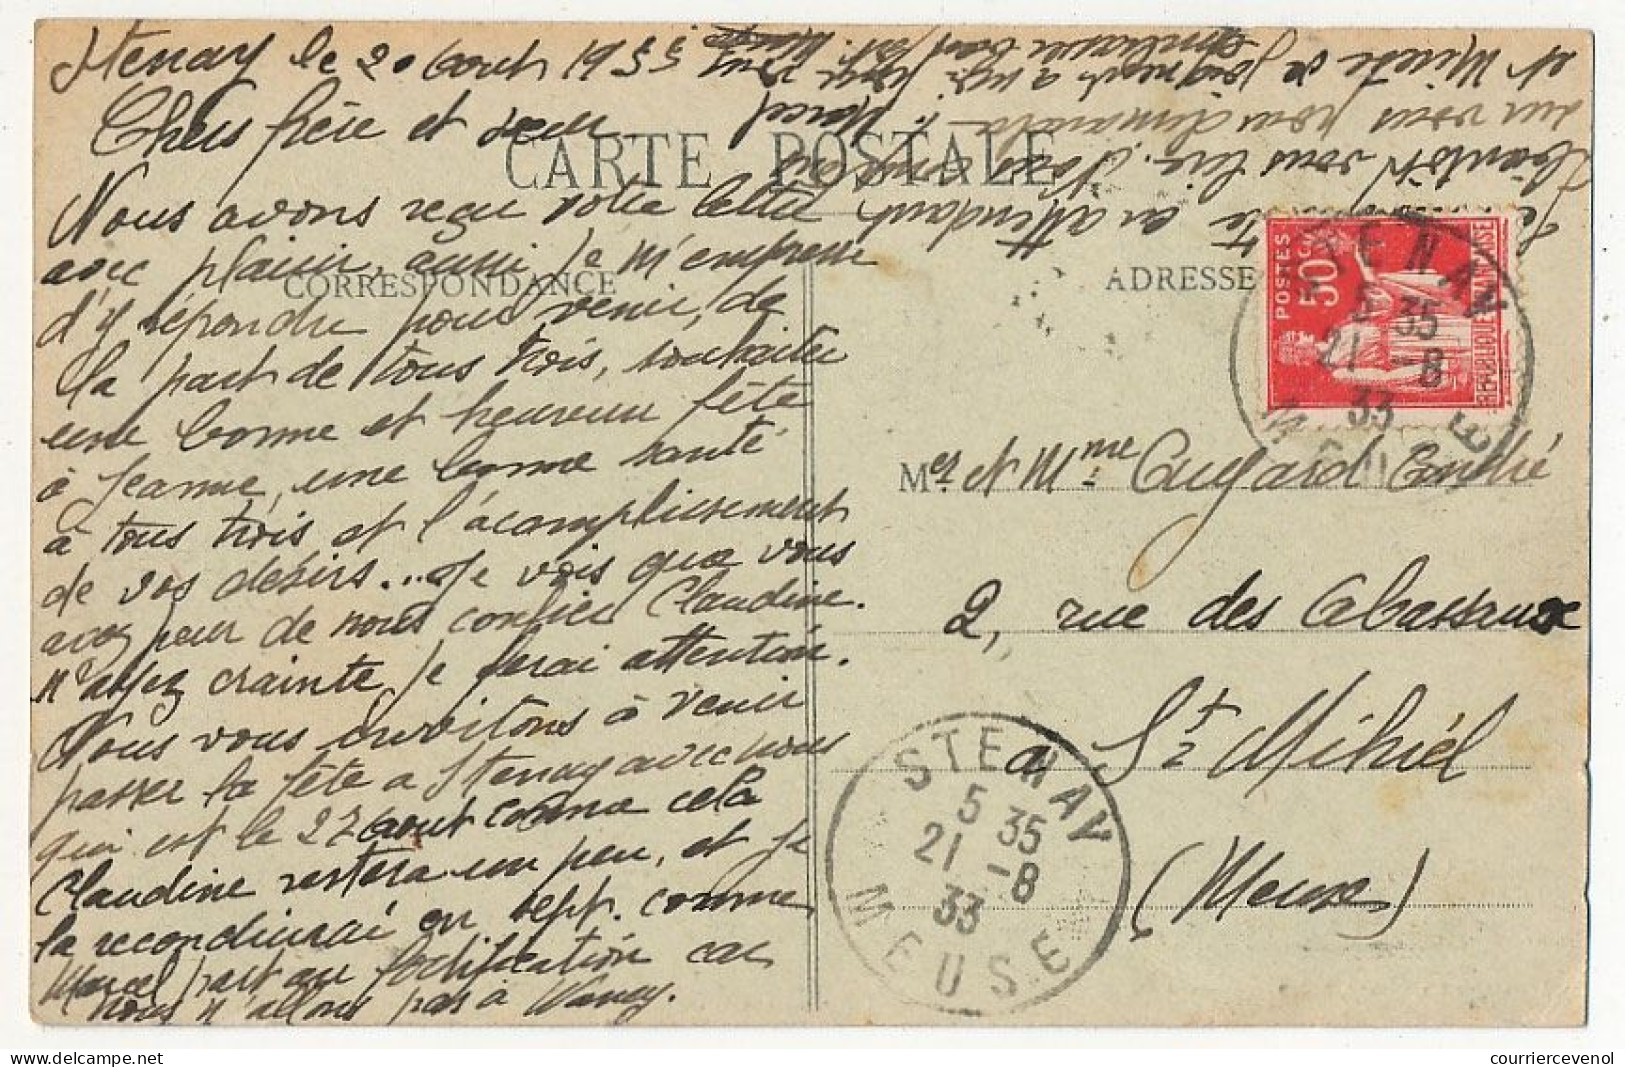 Stenay le 20 Aout 1933
Chers frère et sœur
CARTE POSTALE
Nous avons reçu votre lettre
avec plaisir, aussi je m'empresse
CORRESPONDANCE
ADRESSE
d'y répondre pour venir, de
la part de tous trois, souhaiter
une bonne et heureuse fête
à Jeanne, une bonne santé
à tous trois et l'acomplissement
de vos désirs... Je vois que vous
avez peur de nous confier Claudine.
n'ayez crainte je ferai attention.
Nous vous invitons à venir
passer la fête a Stenay avec nous
qui est le 27 aout comme cela
Claudine restera un peu, et je
la recondiurai en sept. comme
Marcel part au fortification car
nous n'allons pas à Nancy.
en attendant
bientôt vous lire. Nous
sur vous nous demanda
et Mimite se joignent a moi pour vous
embrasser bien fort.
Marcel
POSTES
50 c
REPUBLIQUE FRANÇAISE
STENAY
5 35
21 -8
33
MEUSE
Mer et Mme Cugard André
2, rue des Abasseaux
a St Mihiel
(Meuse)
STENAY
5 35
21 -8
33
MEUSE
courriercevenol